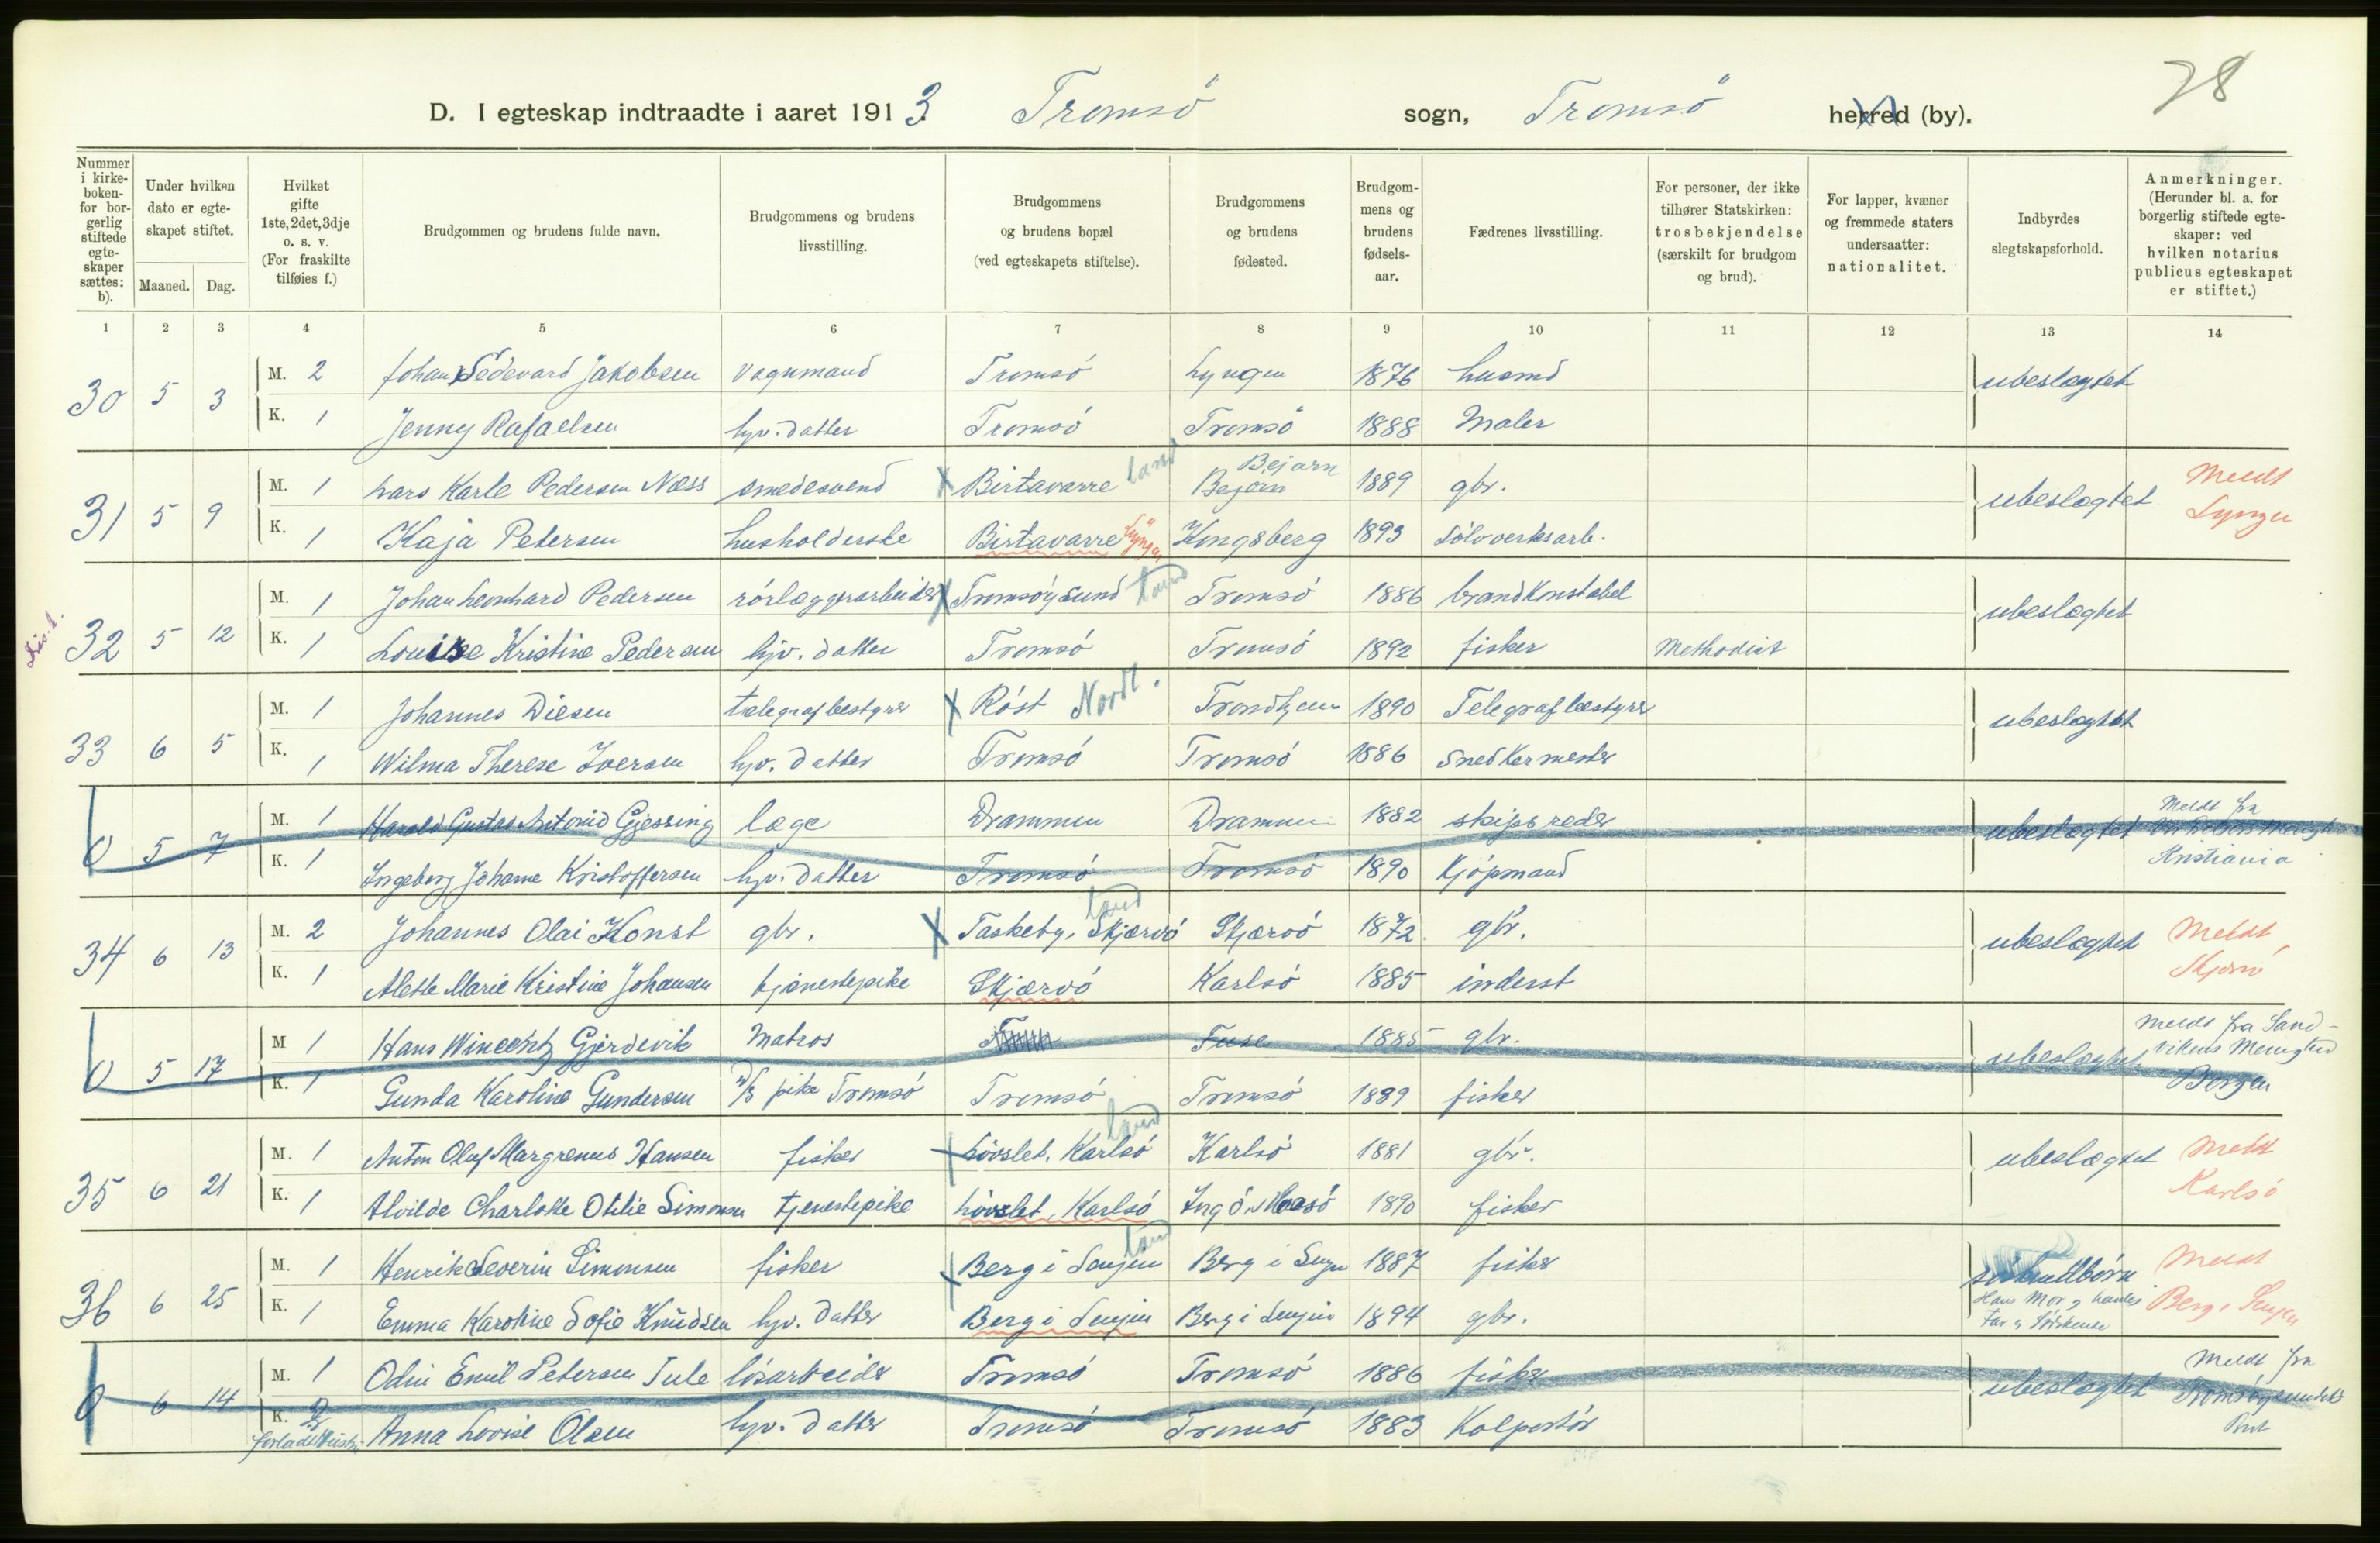 78
D. I egteskap indtraadte i aaret 1913. Tromsö sogn, Tromsö herred (by).
Nummer i kirkeboken- for borgerlig stiftede egteskaper sættes: b).
Under hvilken dato er egteskapet stiftet.
Maaned. Dag.
Hvilket gifte 1ste, 2det, 3dje o. s. v. (For fraskilte tilføies f.)
Brudgommen og brudens fulde navn.
Brudgommens og brudens livsstilling.
Brudgommens og brudens bopæl (ved egteskapets stiftelse).
Brudgommens og brudens fødested.
Brudgommens og brudens fødselsaar.
Fædrenes livsstilling.
For personer, der ikke tilhører Statskirken: trosbekjendelse (særskilt for brudgom og brud).
For lapper, kvæner og fremmede staters undersaatter: nationalitet.
Indbyrdes slegtskapsforhold.
Anmerkninger. (Herunder bl. a. for borgerlig stiftede egteskaper: ved hvilken notarius publicus egteskapet er stiftet.)
1 2 3 4 5 6 7 8 9 10 11 12 13 14
30 5 3 M. 2 Johan Edevard Jakobsen vognmand Tromsö Lyngen 1876 husmd ubeslægtet
K. 1 Jenny Rafaelsen hjv. datter Tromsö Tromsö 1888 Maler
31 5 9 M. 1 Lars Karle Pedersen Næss smedesvend X Birtavarre land Bejarn Bejarn 1889 gbr. ubeslægtet Meldt Lyngen
K. 1 Kaja Petersen husholderske Birtavarre Lyngen Kongsberg 1893 Sölvverksarb.
32 5 12 M. 1 Johan Leonhard Pedersen rörlæggerarbeider X Tromsöysund land Tromsö 1886 brandkonstabel ubeslægtet
K. 1 Louise Kristine Pedersen hjv. datter Tromsö Tromsö 1892 fisker Methodist
33 6 5 M. 1 Johannes Diesen telegrafbestyrer X Röst Nordl. Trondhjem 1890 Telegrafbestyrer ubeslægtet
K. 1 Wilma Therese Iversen hjv. datter Tromsö Tromsö 1886 Snedkermester
0 5 7 M. 1 Harald Gustav Antonid Gjessing læge Drammen Drammen 1882 skipsreder ubeslægtet Meldt fra Kristiania
K. 1 Ingeborg Johanne Kristoffersen hjv. datter Tromsö Tromsö 1890 Kjöpmand
34 6 13 M. 2 Johannes Olai Konst gbr. X Taskeby, Skjærvö land Skjærvö 1872 gbr. ubeslægtet Meldt Skjervö
K. 1 Alette Marie Kristine Johansen tjenestepike Skjærvö Karlsö 1885 inderst
0 5 17 M 1 Hans Wincentz Gjerdevik Matros Fuse 1885 gbr. ubeslægtet Meldt fra Sandvikens Menighed Bergen
K. 1 Gunda Karoline Gundersen pike Tromsö Tromsö Tromsö 1889 fisker
35 6 21 M. 1 Anton Oluf Margrenus Hansen fisker X Lövslet, Karlsö land Karlsö 1881 gbr. ubeslægtet Meldt Karlsö
K. 1 Alvilde Charlotte Otilie Simonsen tjenestepike Lövslet, Karlsö Ingö, Maasö 1890 fisker
36 6 25 M. 1 Henrik Severin Simonsen fisker X Berg i Senjen land Berg i Senjen 1887 fisker Hans Mor og hendes Far er Söskende Meldt Berg i Senjen
K. 1 Emma Karoline Sofie Knudsen hjv. datter Berg i Senjen Berg i Senjen 1894 gbr.
0 6 14 M. 1 Odin Emil Petersen Tule lösarbeider Tromsö Tromsö 1886 fisker ubeslægtet Meldt fra Tromsöysundets Prst
K. 2 Anna Lovise Olsen hjv. datter Tromsö Tromsö 1883 Kolportör